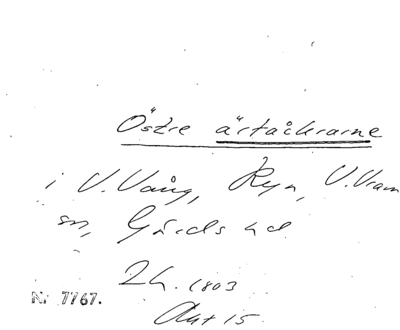 Östre ärtaåkrarne
i V. Vång, Ryn, V. Vram
sn, Gärds hd
Lh. 1803
Akt 15
Nr 7767.